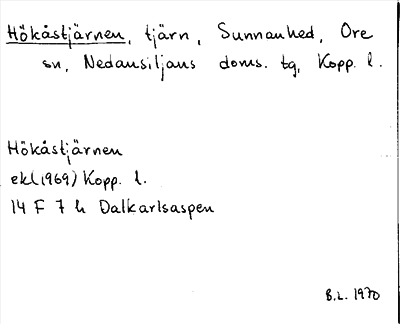 Hökåstjärnen, tjärn, Sunnanhed, Ore
sn, Nedansiljans doms. tg, Kopp. l.
Hökåstjärnen
ekl(1969) Kopp. l.
14 F 7 h Dalkarlsaspen
B.L. 1970